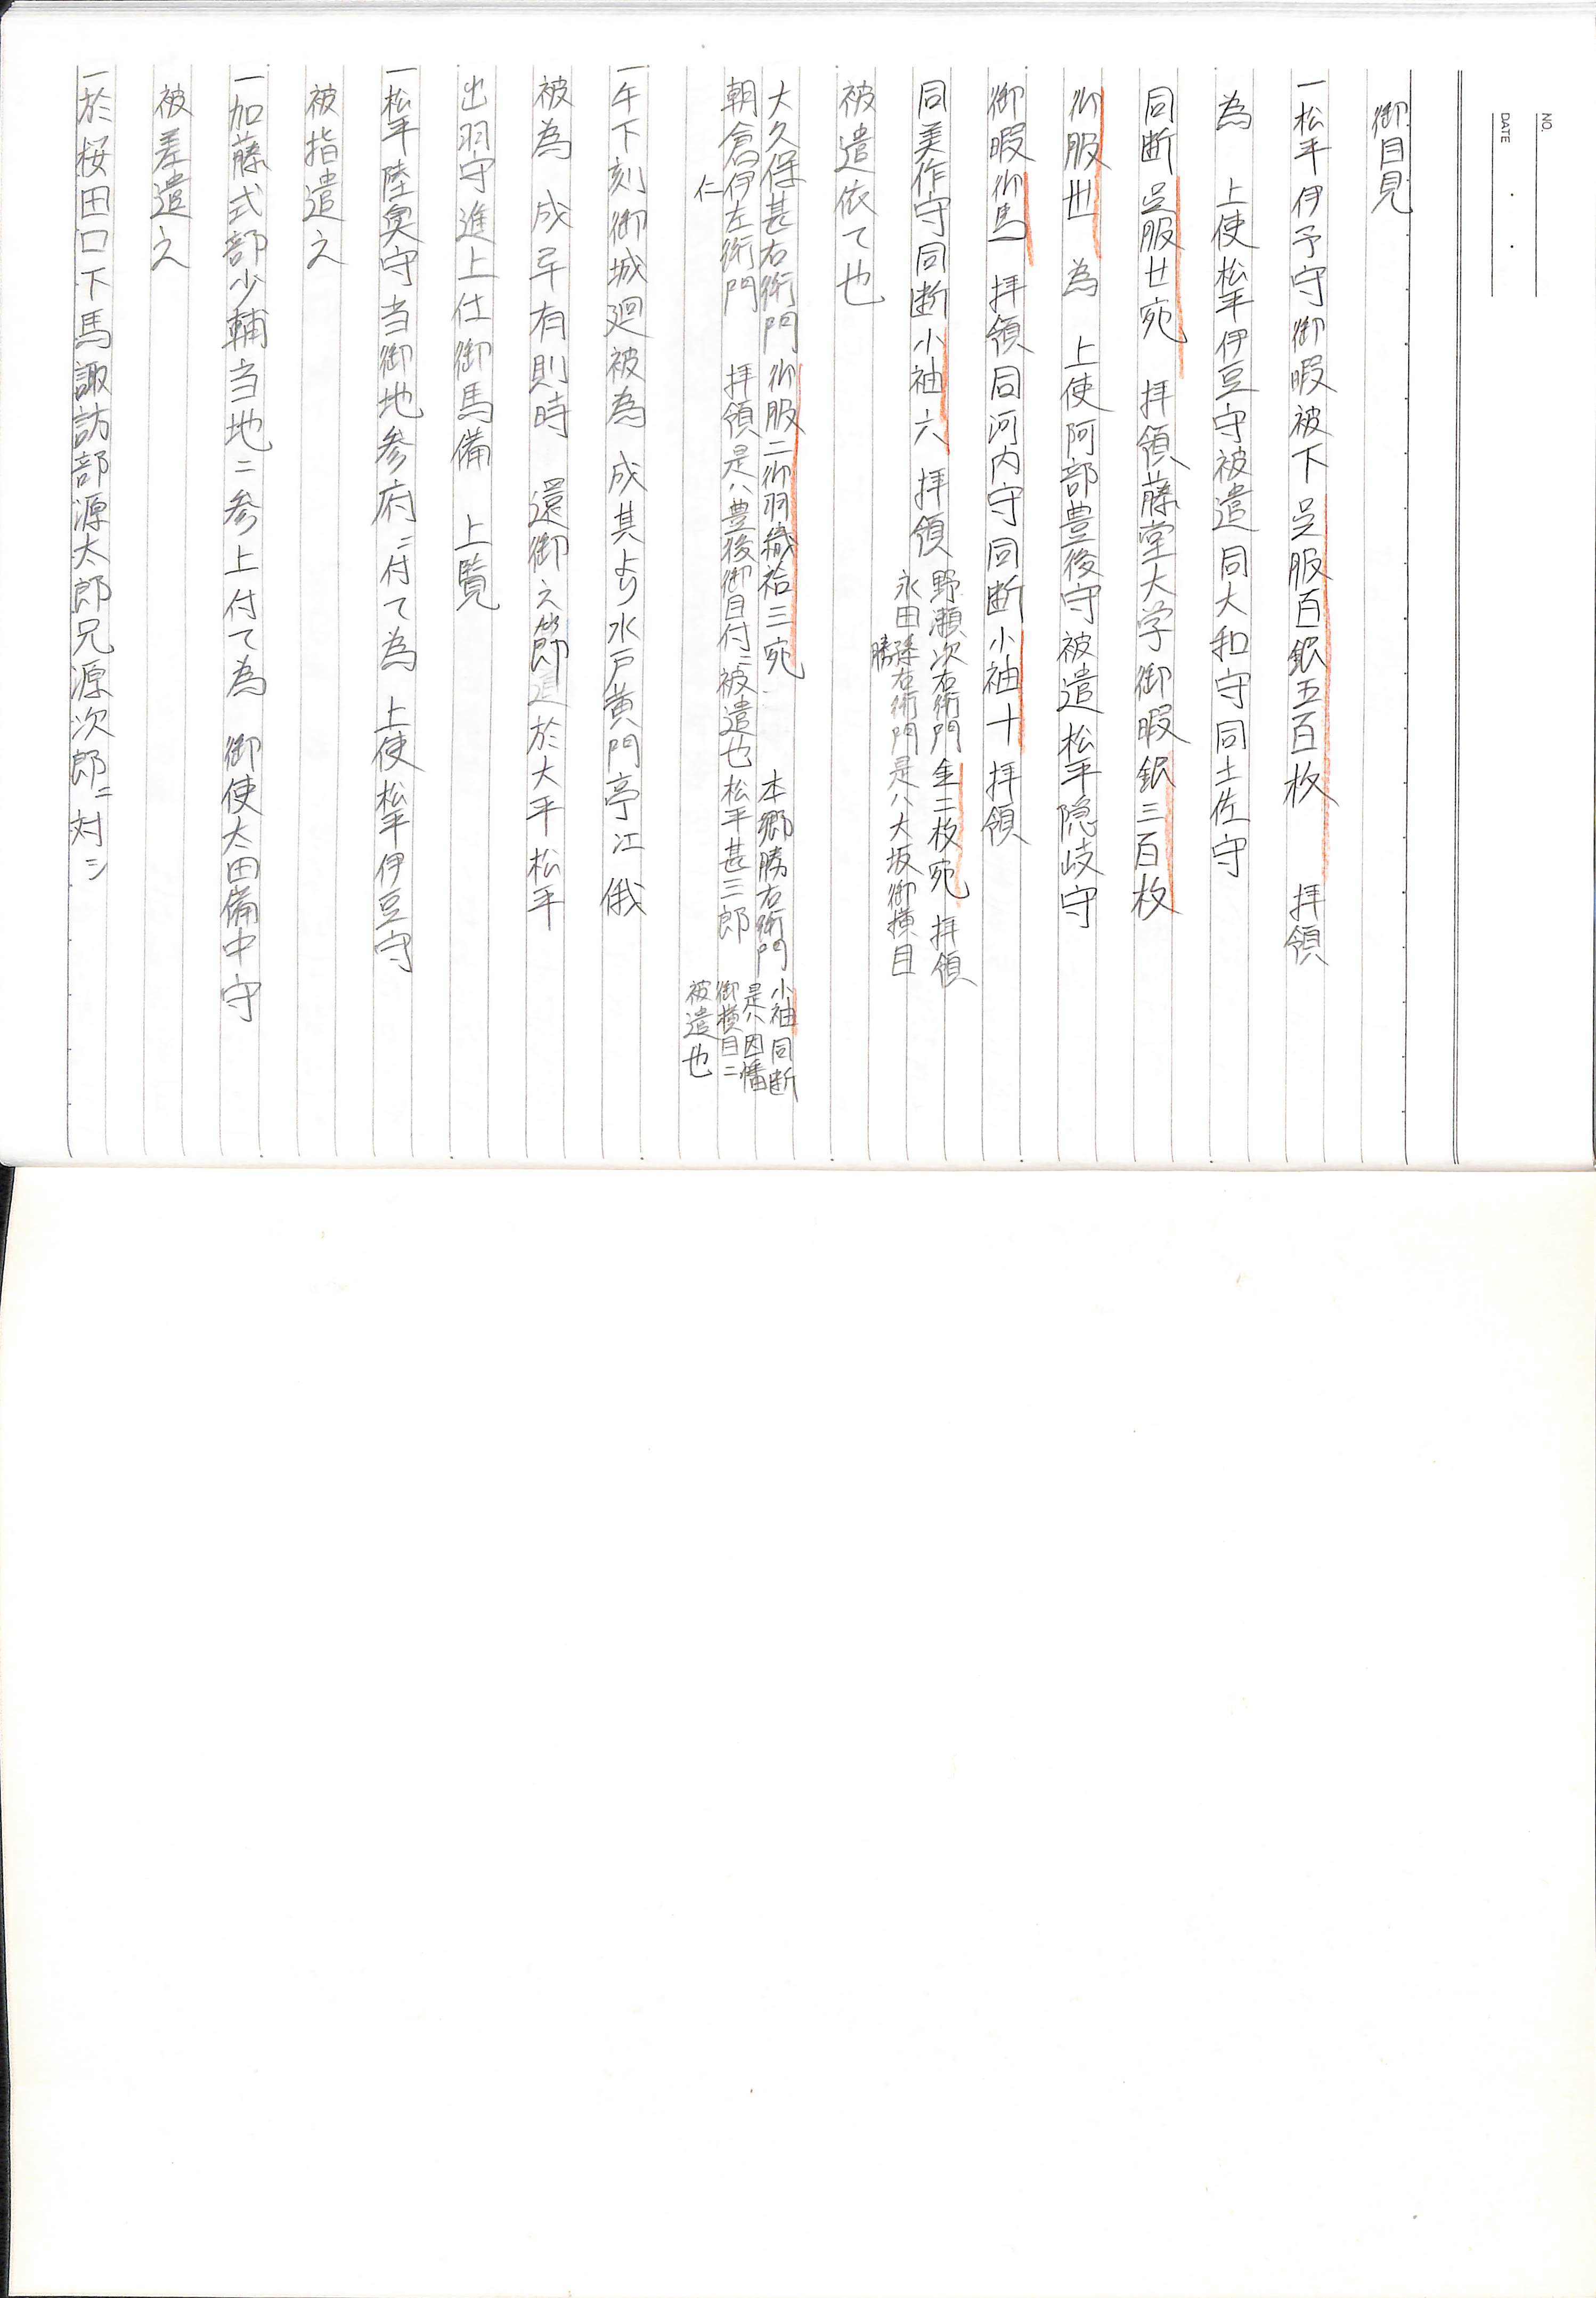 NO.
DATE
御目見
一松平伊予守御暇被下呉服百銀五百枚 拝領
為 上使松平伊豆守被遣同大和守同土佐守
同断呉服廿宛 拝領藤堂大学御暇銀三百枚
御服卅 為 上使阿部豊後守被遣松平隠岐守
御暇御馬一 拝領同河内守同断小袖十拝領
同美作守同断小袖六 拝領
野瀬次右衛門金二枚宛 拝領
永田孫右衛門是八大坂御横目
勝
被遣依て也
大久保甚右衛門御服二御羽織袷三宛
朝倉伊左衛門 拝領是ハ豊後御目付ニ被遣也
仁
本郷勝右衛門
松平甚三郎
小袖同断
是ハ因幡
御横目ニ
被遣也
一午下刻御城廻被為 成其より水戸黄門亭江 俄
被為 成早有則時 還御之節 於大平松平
出羽守進上仕御馬備 上覧
一松平陸奥守当御地参府ニ付て為 上使松平伊豆守
被指遣之
一加藤式部少輔当地ニ参上付て為 御使太田備中守
被差遣之
一於桜田口下馬諏訪部源太郎兄源次郎ニ対シ